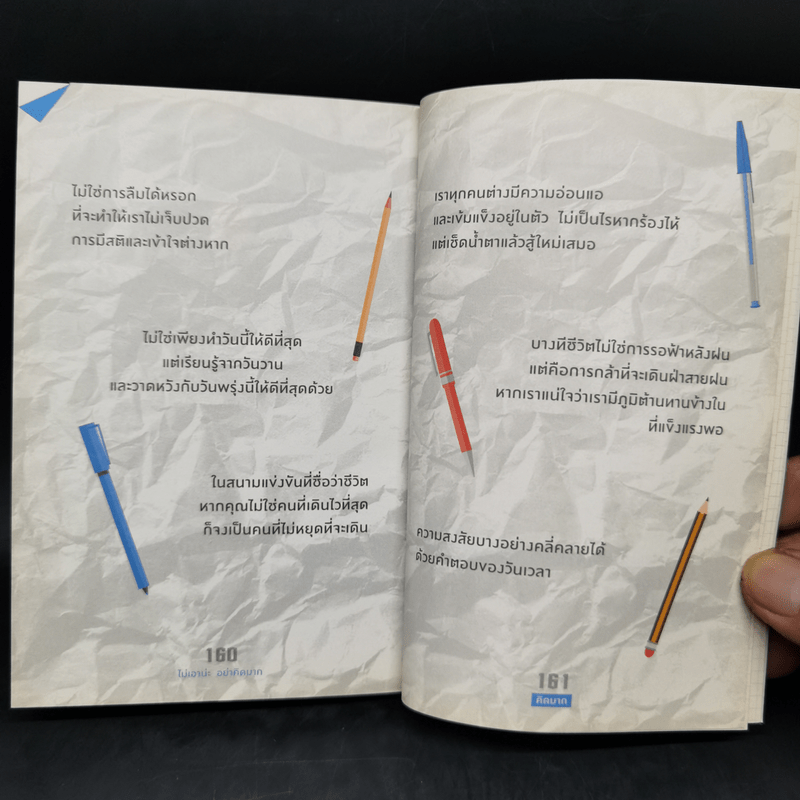 ไม่ใช่การลืมได้หรอก
ที่จะทำให้เราไม่เจ็บปวด
การมีสติและเข้าใจต่างหาก
ไม่ใช่เพียงทำวันนี้ให้ดีที่สุด
แต่เรียนรู้จากวันวาน
และวาดหวังกับวันพรุ่งนี้ให้ดีที่สุดด้วย
ในสนามแข่งขันที่ชื่อว่าชีวิต
หากคุณไม่ใช่คนที่เดินไวที่สุด
ก็จงเป็นคนที่ไม่หยุดที่จะเดิน
160
ไม่เอาน่ะ อย่าคิดมาก
เราทุกคนต่างมีความอ่อนแอ
และเข้มแข็งอยู่ในตัว ไม่เป็นไรหากร้องไห้
แต่เช็ดน้ำตาแล้วสู้ใหม่เสมอ
บางทีชีวิตไม่ใช่การรอฟ้าหลังฝน
แต่คือการกล้าที่จะเดินฝ่าสายฝน
หากเราแน่ใจว่าเรามีภูมิต้านทานข้างใน
ที่แข็งแรงพอ
ความสงสัยบางอย่างคลี่คลายได้
ด้วยคำตอบของวันเวลา
161
คิดมาก